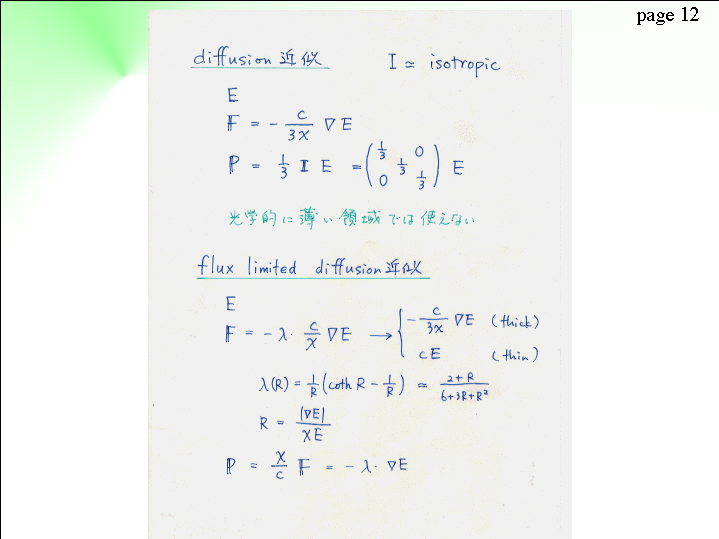 page 12
diffusion 近似 I ≃ isotropic
E
𝔽 = - c/3χ ∇E
ℙ = 1/3 𝕀 E = (1/3 1/3 0 0 1/3) E
光学的に薄い領域では使えない
flux limited diffusion近似
E
𝔽 = - λ · c/χ ∇E → { - c/3χ ∇E (thick)
cE (thin)
λ(R) = 1/R (coth R - 1/R) ≃ 2+R/6+3R+R²
R = |∇E|/χE
ℙ = χ/c 𝔽 = - λ · ∇E